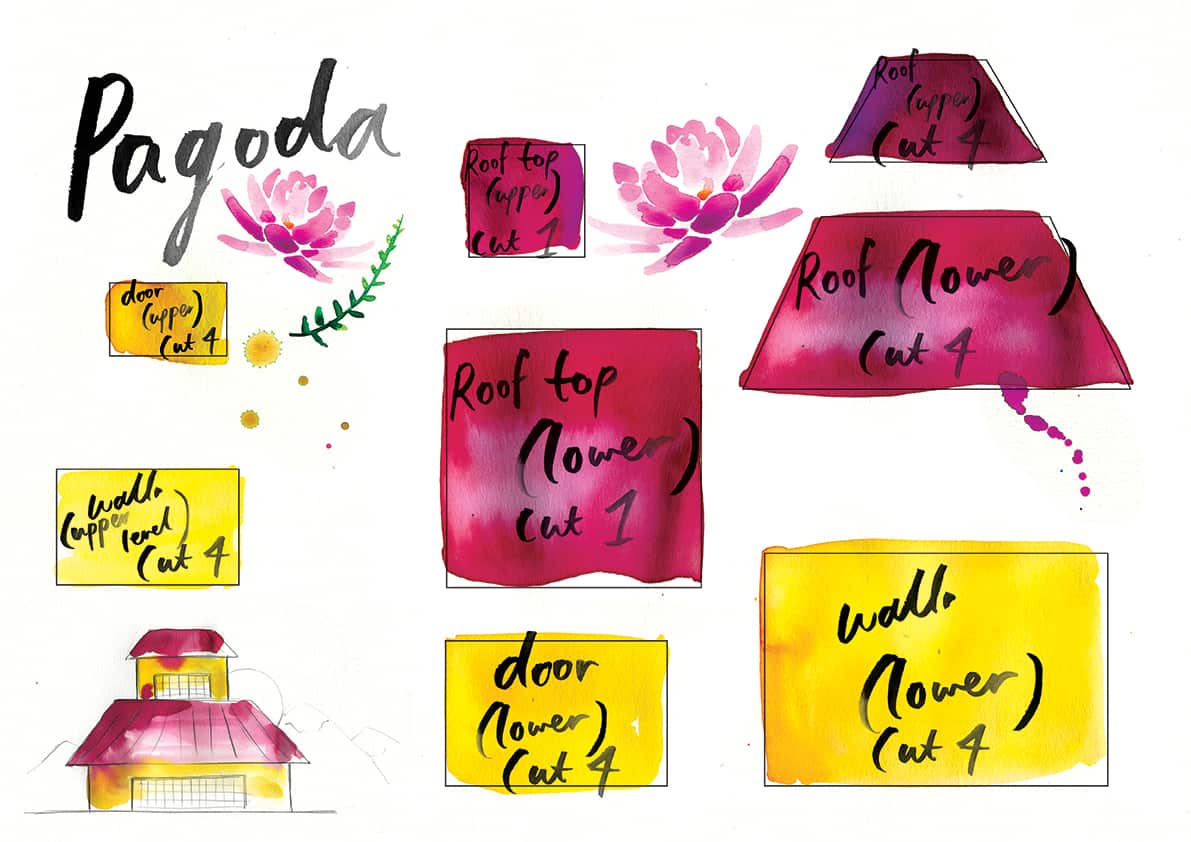 Pagoda
door
(upper)
Cut 4
wall
(upper
level)
Cut 4
Roof top
(upper)
Cut 1
Roof top
(lower)
Cut 1
door
(lower)
Cut 4
Roof
(upper)
Cut 4
Roof (lower)
Cut 4
wall
(lower)
Cut 4